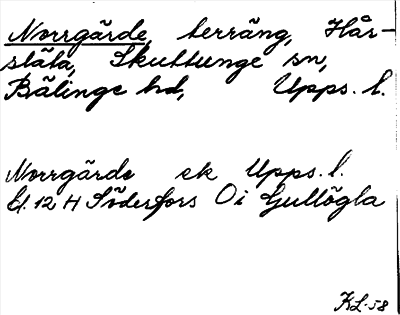 Norrgärde, terräng, Hår-
stäta, Skuttunge sn,
Bälinge hd, Upps. l.
Norrgärde ek Upps. l.
bl. 12 H Söderfors O i Gullögla
KL-58